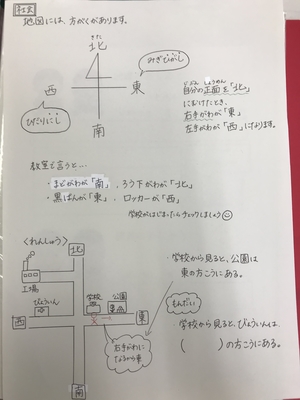 社会
地図には、方がくがあります。
きた
北
みぎひがし
西
東
ひだりにし
南
じぶん しょうめん
自分の正面を「北」
にむけたとき、
右手がわが「東」
左手がわが「西」になります。
教室で言うと…
・まどがわが「南」、ろう下がわが「北」
・黒ばんが「東」、ロッカーが「西」
学校がはじまったらチェックしましょう
〈れんしゅう〉
北
工場
びょういん
学校
公園
西
東
南
右手がわに
なるから東
・学校から見ると、公園は
東の方こうにある。
もんだい
・学校から見ると、びょういんは、
( )の方こうにある。